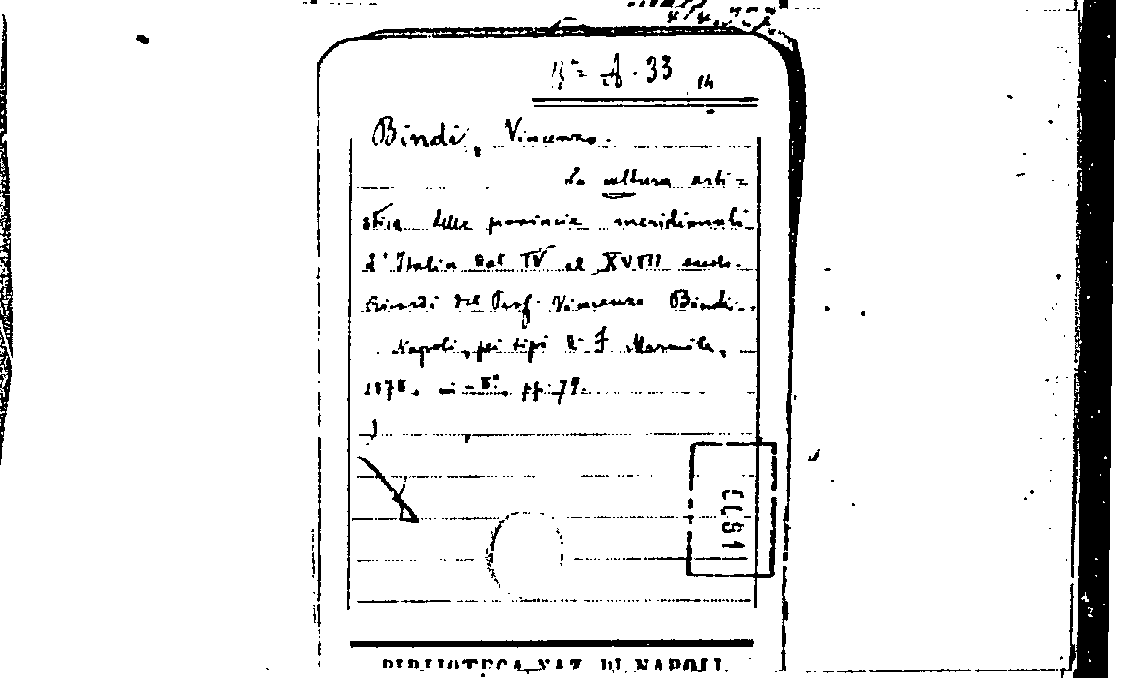 A. 33 14
Bindi, Vincenzo.
La cultura arti=
stica delle provincie meridionali
d'Italia dal IV al XVIII secolo.
Ricordi del Prof. Vincenzo Bindi.
Napoli, pei tipi di F
1878. in-8° pp. 79.
BIBLIOTECA NAZ. DI NAPOLI